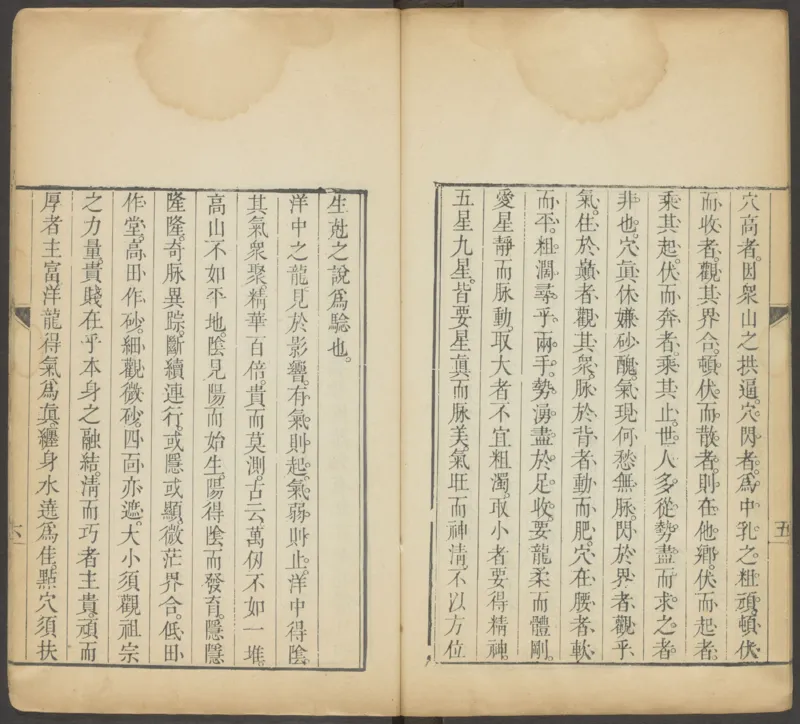 穴高者。因衆山之拱逼。穴閃者。爲中乳之粗頑。頓伏
而收者。觀其界合。頓伏而散者。則在他鄉。伏而起者。
乘其起。伏而奔者。乘其止。世人多從勢盡而求之者
非也。穴眞休嫌砂醜。氣現何愁無脉。閃於界者。觀乎
氣。住於巔者。觀其衆。脉於背者。動而肥。穴在腰者。軟
而平。粗濶尋乎兩手。勢湧盡於足收。要龍柔而體剛。
愛星靜而脉動。取大者不宜粗濁。取小者要得精神。
五星九星。皆要星眞而脉美。氣旺而神淸。不以方位
五
生尅之說爲驗也。
洋中之龍。見於影響。有氣則起。氣弱則止。洋中得陰。
其氣衆聚。精華百倍。貴而莫測。古云萬仞不如一堆。
高山不如平地。陰見陽而始生。陽得陰而發育。隱隱
隆隆。奇脉異踪。斷續連行。或隱或顯。微茫界合。低田
作堂。高田作砂。細觀微砂。四面亦遮。大小須觀祖宗
之力量。貴賤在乎本身之融結。淸而巧者主貴。頑而
厚者主富。洋龍得氣爲眞。纒身水遶爲佳。點穴須扶
六